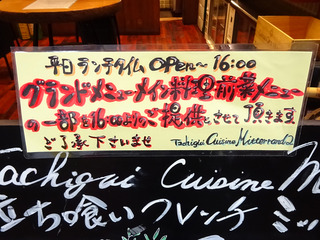 平日ランチタイム OPEN〜16:00
グランドメニューメイン料理前菜メニュー
の一部を16:00よりのご提供とさせて頂きます
ご了承下さいませ Tachigui Cuisine Mitterrand2
Tachigui Cuisine M
立ち喰いフレンチ ミッ